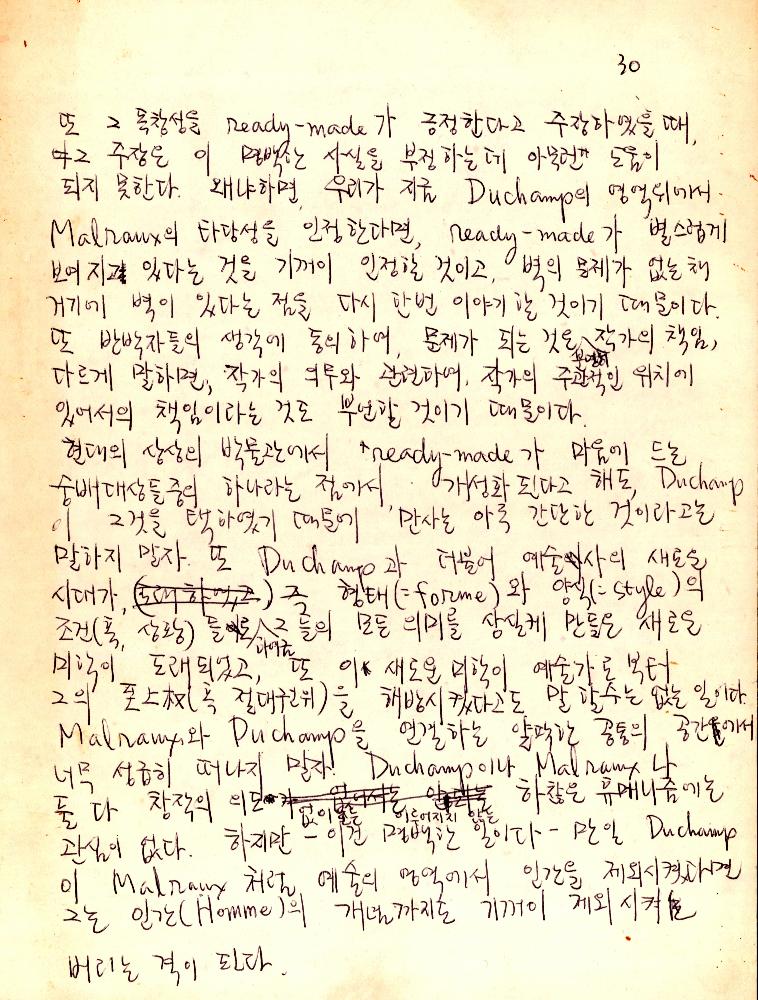 30
또 그 독창성을 ready-made가 긍정한다고 주장하였을 때,
주장은 이 명백한 사실을 부정하는데 아무런 도움이
되지 못한다. 왜냐하면, 우리가 지금 Duchamp의 영역위에서
Malraux의 타당성을 인정한다면, ready-made가 별스럽게
보여지고 있다는 것을 기꺼이 인정할 것이고, 벽의 문제가 없는 채
거기에 벽이 있다는 점을 다시 한번 이야기 할 것이기 때문이다.
또 반박자들의 생각에 동의하여, 문제가 되는 것은 작가의 책임,
다르게 말하면, 작가의 의무와 관련하여, 작가의 주관적인 위치에
있어서의 책임이라는 것도 부언할 것이기 때문이다.
현대의 상상의 박물관에서 ready-made가 마음에 드는
숭배대상들중의 하나라는 점에서, 개성화된다고 해도, Duchamp
이 그것을 택하였기 때문에 만사는 아주 간단한 것이라고는
말하지 말자. 또 Duchamp과 더불어 예술사의 새로운
시대가, 즉 형태(=forme)와 양식(=style)의
조건(혹, 상황)들로 하여금 그들의 모든 의미를 상실케 만들은 새로운
미학이 도래되었고, 또 이 새로운 미학이 예술가로 부터
그의 至上권(혹 절대권위)을 해방시켰다고도 말 할수는 없는 일이다.
Malraux와 Duchamp을 연결하는 얄팍한 공통의 공간에서
너무 성급히 떠나지 말자! Duchamp이나 Malraux나
둘 다 창작의 의도 없이는 이루어지지 않는 하찮은 휴매니즘에는
관심이 없다. 하지만 - 이건 명백한 일이다 - 만일 Duchamp
이 Malraux처럼 예술의 영역에서 인간을 제외시켰다면
그는 인간(Homme)의 개념까지도 기꺼이 제외시켜
버리는 격이 된다.